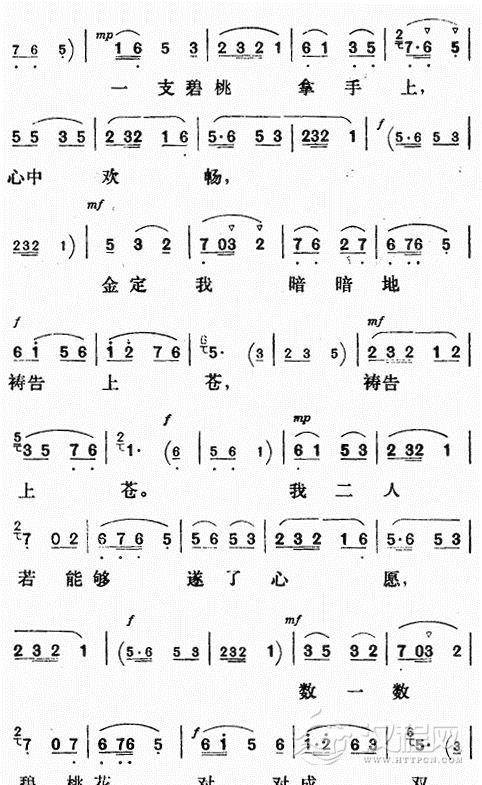 7 6 5) mp 1 6 5 3 2 3 2 1 6 1 3 5 2 7·6 5
一 支 碧 桃 拿 手 上,
5 5 3 5 2 32 1 6 5·6 5 3 232 1 f (5·6 5 3
心中 欢 畅,
232 1) mf 5 3 2 7 03 2 7 6 2 7 6 76 5
金 定 我 暗 暗 地
f 6 i 5 6 i 2 7 6 6 5· (3 2 3 5) mf 2 3 2 1 2
祷告 上 苍, 祷告
5 3 5 7 6 2 1· f (6 5 6 1) mp 6 1 5 3 2 32 1
上 苍。 我 二 人
2 7 0 2 6 7 6 5 5 6 5 3 2 3 2 1 6 5·6 5 3
若 能够 遂 了 心 愿,
2 3 2 1 f (5·6 5 3 232 1) mf 3 5 3 2 7 03 2
数 一 数
2 7 0 7 6 76 5 f 6 i 5 i 2 6 3 6 5· (3
汉程网
WWW.HTTPCN.COM
碧 桃花 对 对 成 双